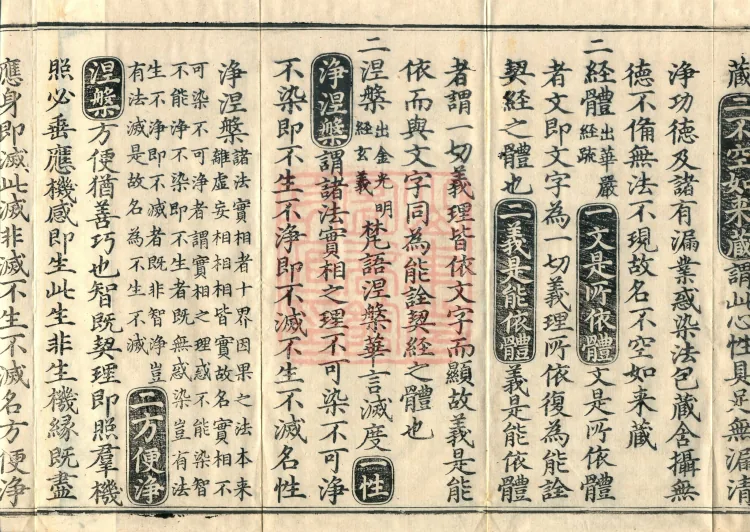 藏二不空如来藏謂此心性具足無漏清
淨功德及諸有漏業惑染法包藏含攝無
德不備無法不現故名不空如来藏
二經體出華嚴經䟽一文是所依體文是所依體
者文即文字為一切義理所依復為能詮
契經之體也二義是能依體義是能依體
者謂一切義理皆依文字而顯故義是能
依而與文字同為能詮契經之體也
二涅槃出金光明經玄義梵語涅槃華言滅度一性
淨涅槃謂諸法實相之理不可染不可淨
不染即不生不淨即不滅不生不滅名性
淨涅槃諸法實相者十界因果之法本来
雖虛妄相相相皆實故名實相不
可染不可淨者謂實相之理惑不能染智
不能淨不染即不生者既無惑染豈有法
生不淨即不滅者既非智淨豈
有法滅是故名為不生不滅
二方便淨
涅槃方便猶善巧也智既契理即照羣機
照必垂應機感即生此生非生機緣既盡
應身即滅此滅非滅不生不滅名方便淨